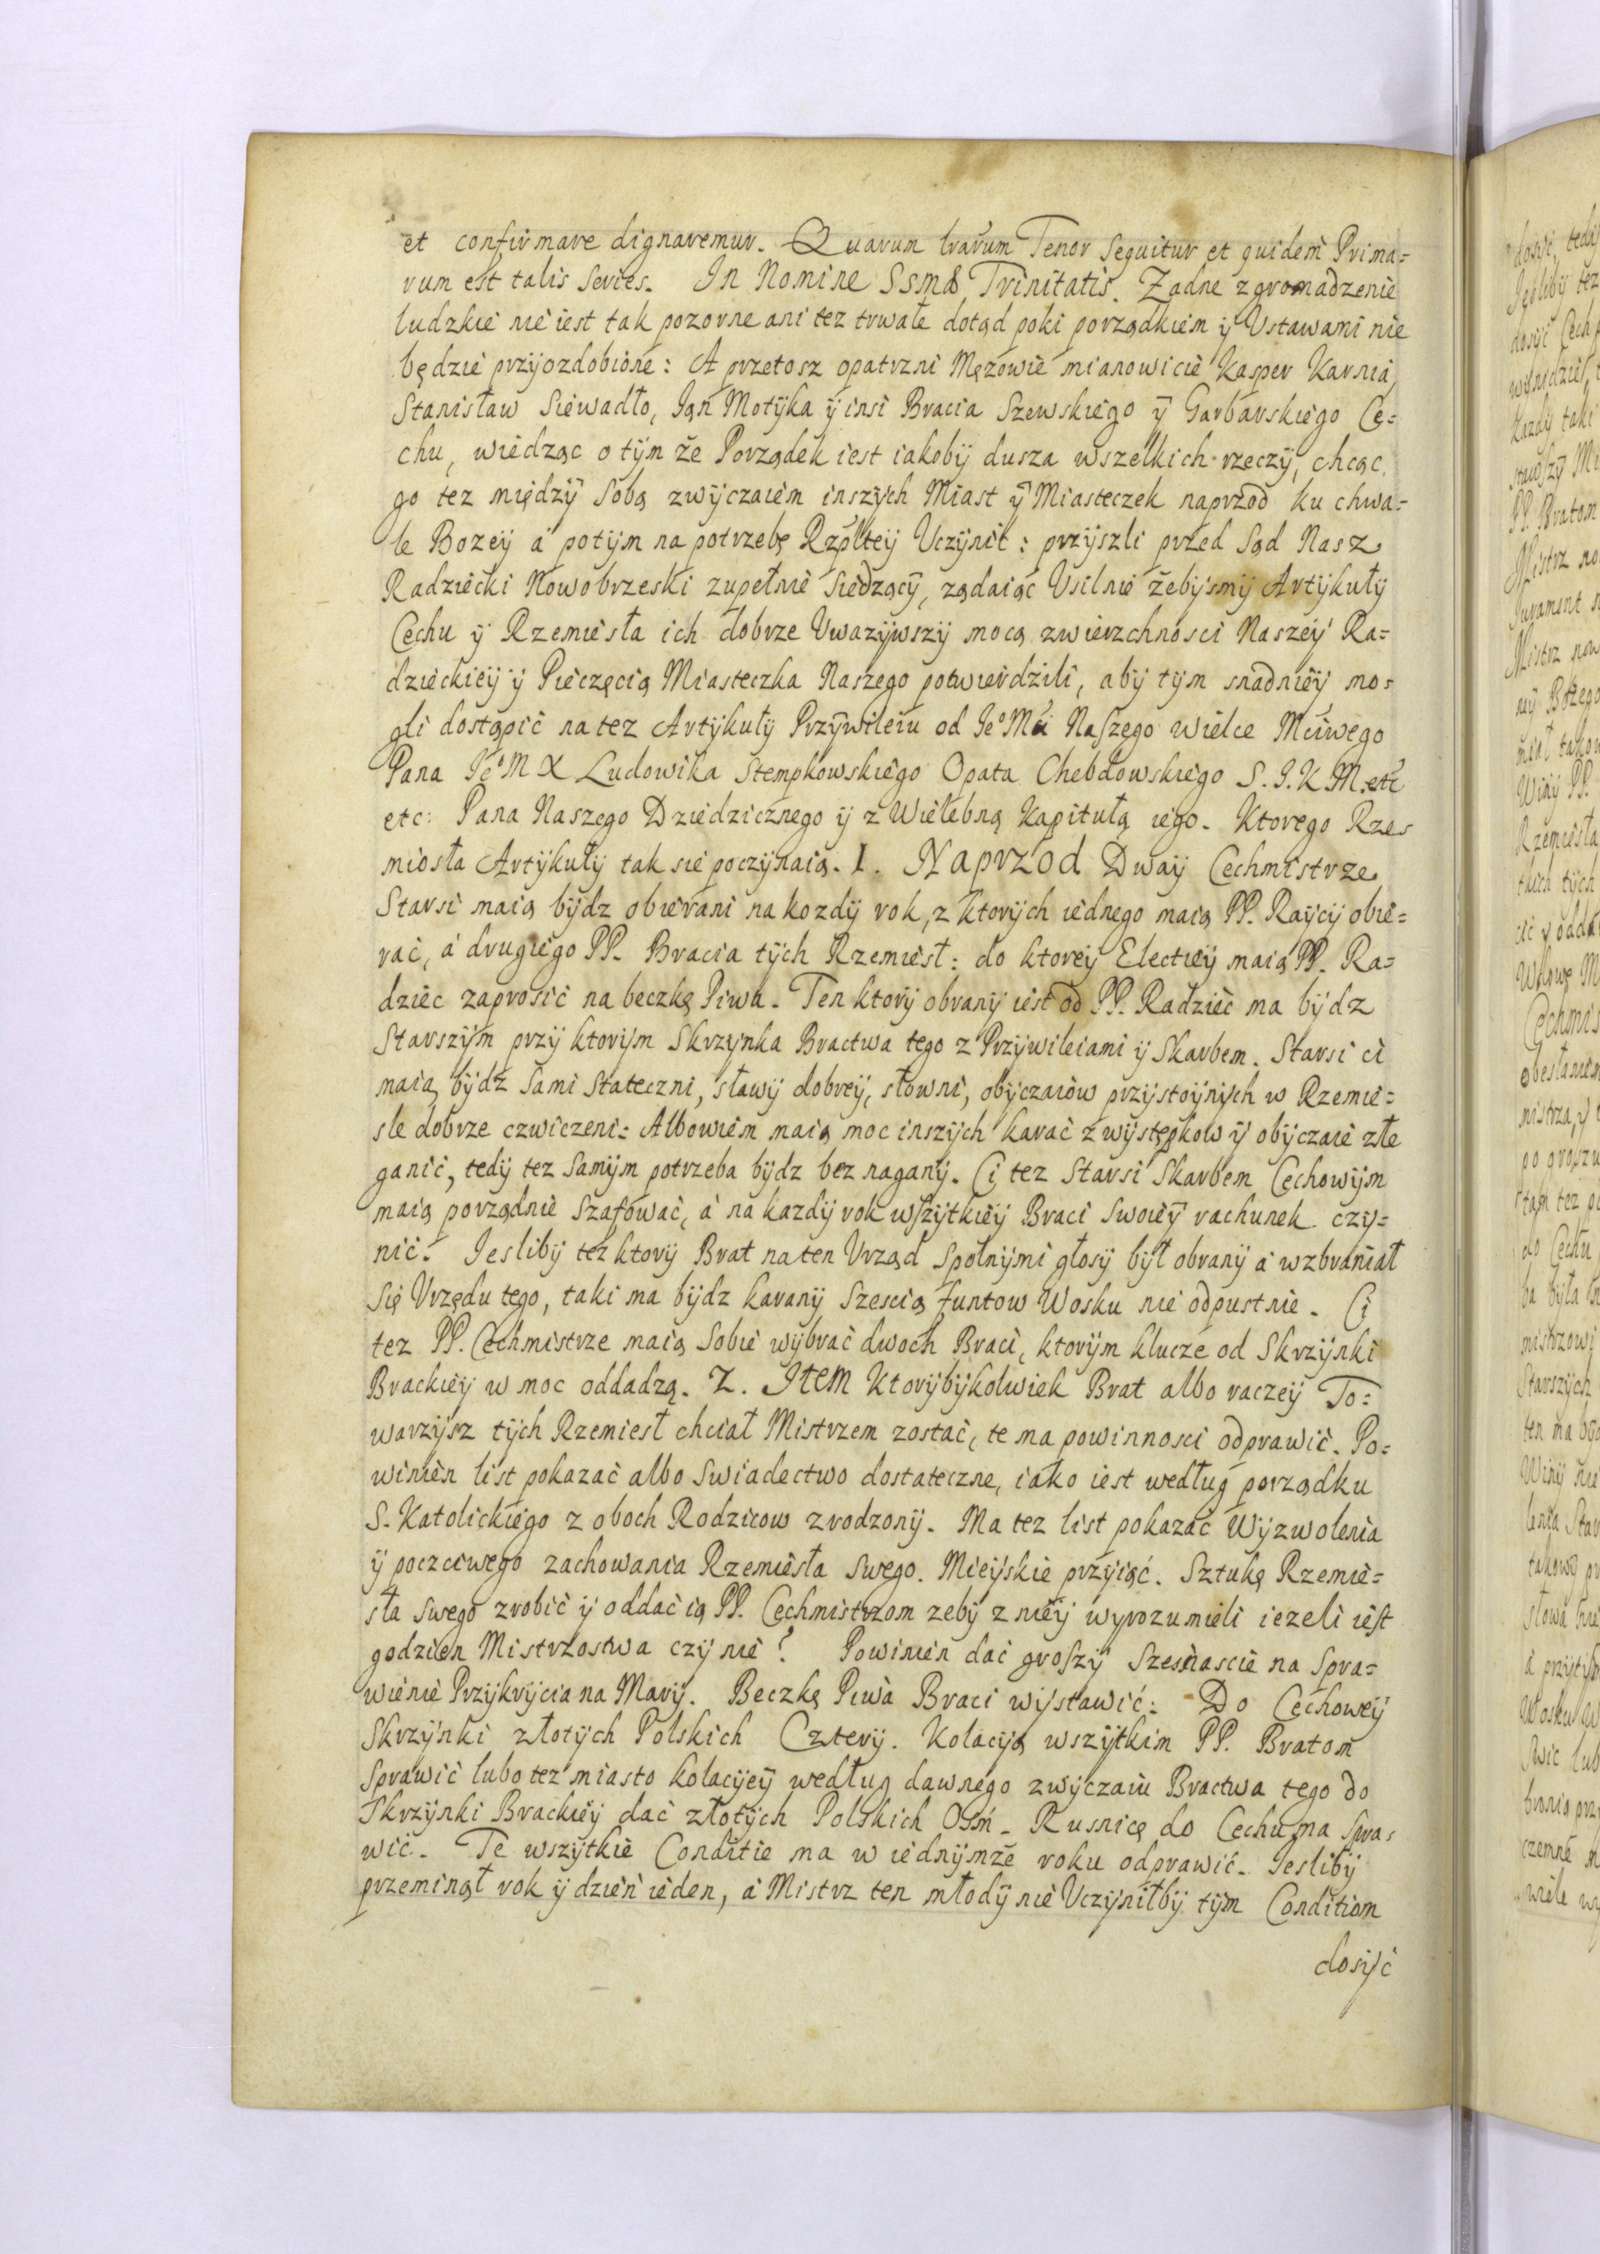 et confirmare dignaremur. Quarum lrarum Tenor Sequitur et quidem Prima=
rum est talis Series. In Nomine SSmæ Trinitatis. Zadne zgromadzenie
ludzkie nie iest tak pozorne ani tez trwałe dotąd poki porządkiem ÿ Ustawami nie
będzie przyozdobione: A przetosz opatrzni Męzowie mianowicie Kasper Karnia
Stanisław Siewadło, Ian Motÿka ÿ insi Bracia Szewskiego ÿ Garbarskiego Ce=
chu, wiedząc o tÿm że Porządek iest iakobÿ dusza wszelkich rzeczÿ, chcąc
go tez międzÿ Sobą zwÿczaiem inszÿch Miast ÿ Miasteczek naprzod ku chwa=
le Bozeÿ a potÿm na potrzebę Rzplteÿ Uczÿnić: przÿszli przed Sąd Nasz
Radziecki Nowobrzeski zupełnie Siedzącÿ, ządaiąc Usilnie żebÿsmÿ Artÿkułÿ
Cechu ÿ Rzemiesła ich dobrze Uwazÿwszÿ mocą zwierzchnosci Naszeÿ Ra=
dzieckieÿ ÿ Pieczęcią Miasteczka Naszego potwierdzili, abÿ tÿm snadnieÿ mo=
gli dostąpić na tez Artÿkułÿ Przÿwileiu od Ieo Mci Naszego wielce Mciwego
Pana Ieo M X Ludowika Stempkowskiego Opata Chebdowskiego S. I. K. M. etc
etc: Pana Naszego Dziedzicznego ÿ z Wielebną Kapitułą iego. Ktorego Rze=
miosła Artÿkułÿ tak sie poczÿnaią. 1. Naprzod Dwaÿ Cechmistrze
Starsi maią bÿdz obierani na kozdÿ rok, z ktorÿch iednego maią PP. Raÿcÿ obie=
rać, a drugiego PP. Bracia tÿch Rzemiesł: do ktoreÿ Electieÿ maią PP. Ra=
dziec zaprosić na beczkę Piwa. Ten ktorÿ obranÿ iest od PP. Radziec ma bÿdz
Starszÿm przÿ ktorÿm Skrzÿnka Bractwa tego z Przÿwileiami ÿ Skarbem. Starsi ci
maią bÿdz Sami Stateczni, sławÿ dobreÿ, słowni, obÿczaiow przÿstoÿnÿch w Rzemie=
sle dobrze czwiczeni: Albowiem maią moc inszÿch karać z wÿstępkow ÿ obÿczaie złe
ganić, tedÿ tez Samÿm potrzeba bÿdz bez naganÿ. Ci tez Starsi Skarbem Cechowÿm
maią porządnie Szafować, a na kazdÿ rok wszÿtkieÿ Braci Swoieÿ rachunek czÿ=
nić. Ieslibÿ tez ktorÿ Brat na ten Urząd Spolnÿmi głosÿ bÿł obranÿ a wzbraniał
Się Urzędu tego, taki ma bÿdz karanÿ Szescią funtow Wosku nie odpustnie. Ci
tez PP. Cechmistrze maią Sobie wÿbrać dwoch Braci, ktorÿm klucze od Skrzÿnki
Brackieÿ w moc oddadzą. 2. Item Ktorÿbÿkolwiek Brat albo raczeÿ To=
warzÿsz tÿch Rzemiesł chciał Mistrzem zostać, te ma powinnosci odprawić. Po=
winien list pokazać albo Swiadectwo dostateczne, iako iest według porządku
S. Katolickiego z oboch Rodzicow zrodzonÿ. Ma tez list pokazać Wÿzwolenia
ÿ poczciwego zachowania Rzemiesła Swego. Mieÿskie przÿiąć. Sztukę Rzemie=
sła Swego zrobić ÿ oddać ią PP. Cechmistrzom zebÿ z nieÿ wÿrozumieli iezeli iest
godzien Mistrzostwa czÿ nie? Powinien dać groszÿ Szesnascie na Spra=
wienie Przÿkrÿcia na Marÿ. Beczkę Piwa Braci wÿstawić: Do Cechoweÿ
Skrzÿnki złotÿch Polskich Czterÿ. Kolacÿą wszÿtkim PP. Bratom
Sprawić lubo tez miasto kolacÿeÿ według dawnego zwÿczaiu Bractwa tego do
Skrzÿnki Brackieÿ dać złotÿch Polskich Osm. Rusnicę do Cechu ma Spra=
wić. Te wszÿtkie Conditie ma w iednÿmże roku odprawić. Ieslibÿ
przeminął rok ÿ dzień ieden, a Mistrz ten młodÿ nie Uczÿniłbÿ tÿm Conditiom
dosÿć